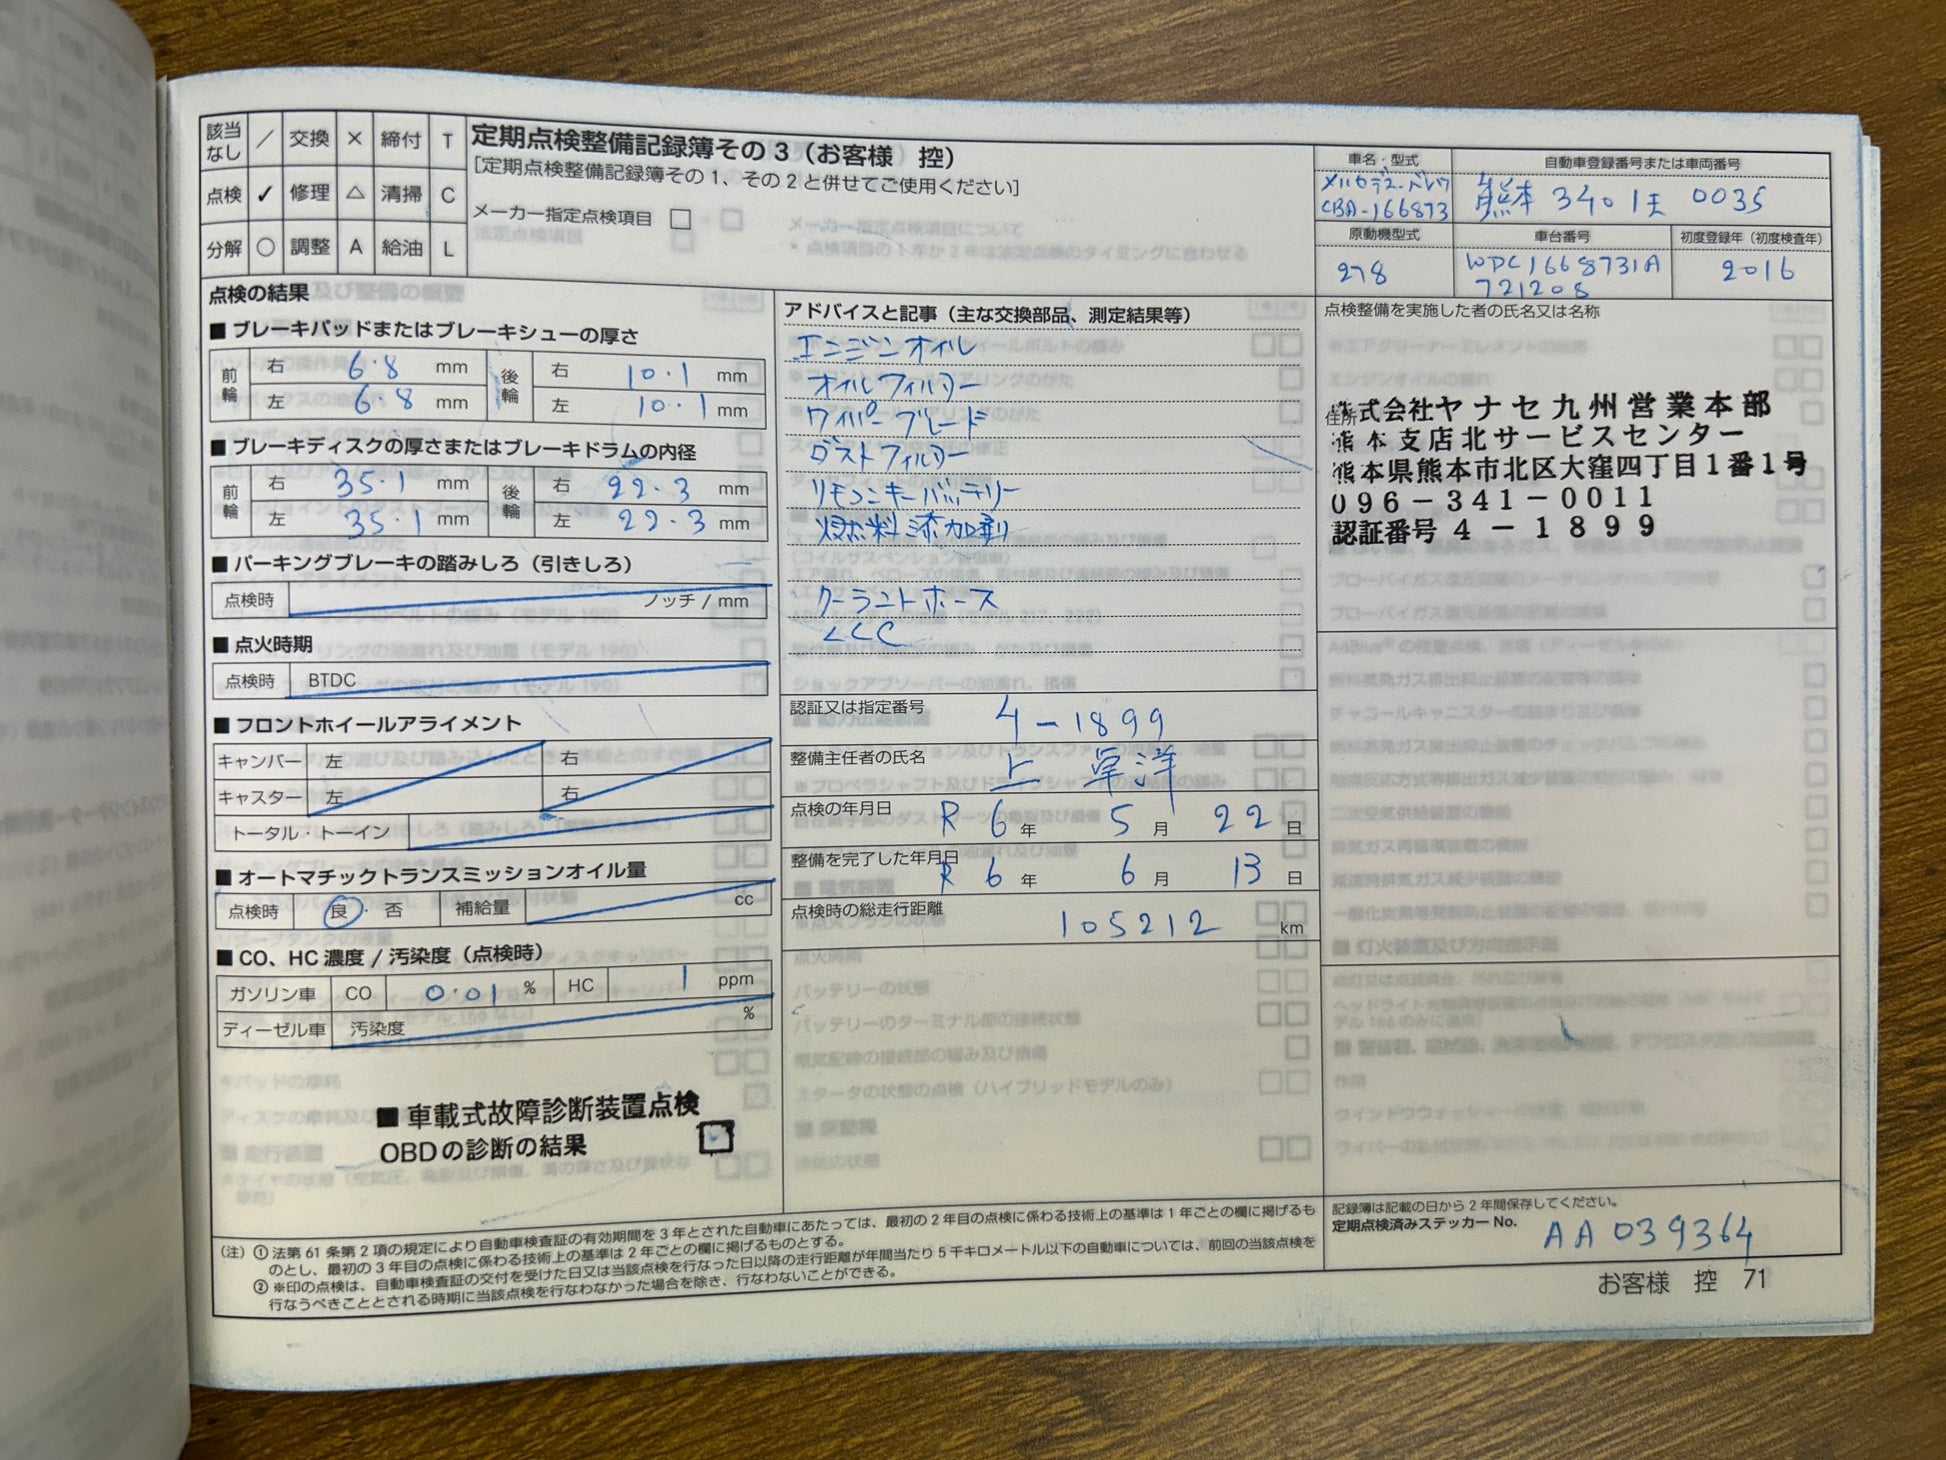 該当なし ／ 交換 × 締付 T
点検 ✓ 修理 △ 清掃 C
分解 ○ 調整 A 給油 L
定期点検整備記録簿その3（お客様 控）
[定期点検整備記録簿その1、その2と併せてご使用ください]
メーカー指定点検項目 □
車名・型式
CBA-166873
自動車登録番号または車両番号
熊本 340 0035
原動機型式
278
車台番号
WDC1668731A
721208
初度登録年（初度検査年）
2016
点検の結果
■ ブレーキパッドまたはブレーキシューの厚さ
前輪 右 6.8 mm 後輪 右 10.1 mm
左 6.8 mm 左 10.1 mm
■ ブレーキディスクの厚さまたはブレーキドラムの内径
前輪 右 35.1 mm 後輪 右 22.3 mm
左 35.1 mm 左 22.3 mm
■ パーキングブレーキの踏みしろ（引きしろ）
点検時 ノッチ / mm
■ 点火時期
点検時 BTDC
■ フロントホイールアライメント
キャンバー 左 右
キャスター 左 右
トータル・トーイン
■ オートマチックトランスミッションオイル量
点検時 良・否 補給量 cc
■ CO、HC 濃度 / 汚染度（点検時）
ガソリン車 CO 0.01 % HC 1 ppm
ディーゼル車 汚染度 %
■ 車載式故障診断装置点検
OBDの診断の結果
アドバイスと記事（主な交換部品、測定結果等）
エンジンオイル
オイルフィルター
ワイパーブレード
ダストフィルター
リモコンキーバッテリー
燃料添加剤
クーラントホース
LLC
認証又は指定番号
4-1899
整備主任者の氏名
点検の年月日
R 6 年 5 月 22 日
整備を完了した年月日
R 6 年 6 月 13 日
点検時の総走行距離
105212 km
点検整備を実施した者の氏名又は名称
住所
株式会社ヤナセ九州営業本部
熊本支店北サービスセンター
熊本県熊本市北区大窪四丁目1番1号
096-341-0011
認証番号 4-1899
（注）① 法第 61 条第 2 項の規定により自動車検査証の有効期間を 3 年とされた自動車にあたっては、最初の 2 年目の点検に係わる技術上の基準は 1 年ごとの欄に掲げるも
のとし、最初の 3 年目の点検に係わる技術上の基準は 2 年ごとの欄に掲げるものとする。
② ※印の点検は、自動車検査証の交付を受けた日又は当該点検を行なった日以降の走行距離が年間当たり 5 千キロメートル以下の自動車については、前回の当該点検を
行なうべきこととされる時期に当該点検を行なわなかった場合を除き、行なわないことができる。
記録簿は記載の日から 2 年間保存してください。
定期点検済みステッカー No.
AA039364
お客様 控 71